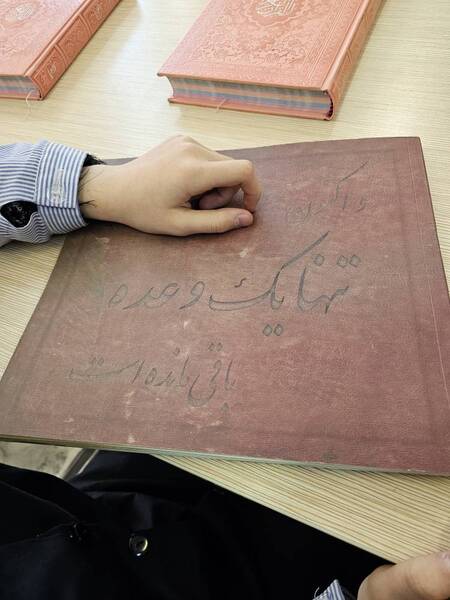 و اکنون
تنها یک وعده
باقی مانده است